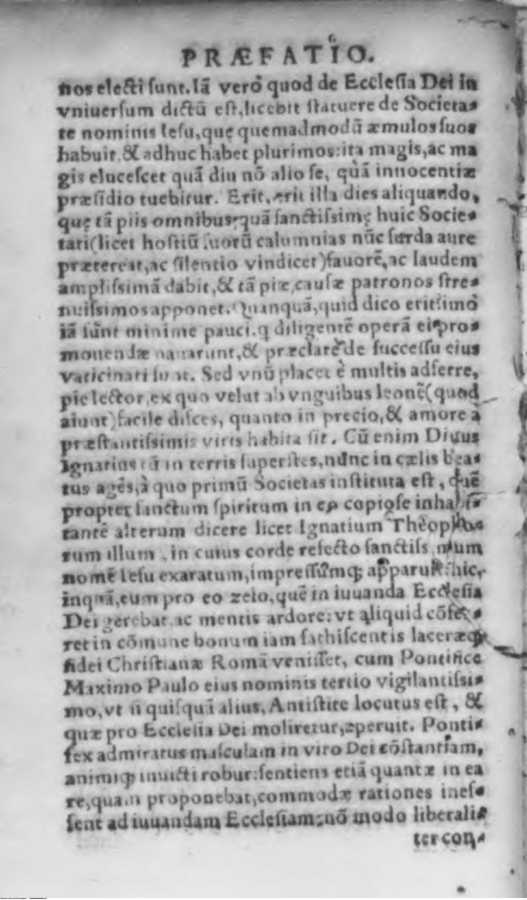 PRÆFATIO.
nos electi sunt. Iā vero quod de Ecclesia Dei in
vniuersum dictū est, licebit statuere de Societa-
te nominis Iesu, quę quemadmodū æmulos suos
habuit, & adhuc habet plurimos: ita magis, ac ma
gis elucescet quā diu nō alio se, quā innocentiæ
præsidio tuebitur. Erit, erit illa dies aliquando,
quę tā piis omnibus, quā sanctissimę huic Socie-
tati (licet hostiū suorū calumnias nūc surda aure
prætereat, ac silentio vindicet) fauorē, ac laudem
amplissimā dabit, & tā piæ causæ patronos stre-
nuissimos apponet. Quanquā, quid dico erit? imò
iā sunt minime pauci, q diligentē operā ei pro-
mouendæ nauarunt, & præclare de successu eius
vaticinati sunt. Sed vnū placet è multis adferre,
pie lector, ex quo velut ab vnguibus leonē (quod
aiunt) facile disces, quanto in precio, & amore à
præstantissimis viris habita sit. Cū enim Diuus
Ignatius tā in terris superstes, nunc in cælis bea-
tus agēs, à quo primū Societas instituta est, quē
propter sanctum spiritum in eo copiose inhabi-
tantē alterum dicere licet Ignatium Theopho-
rum illum, in cuius corde resecto sanctiss mum
nomē Iesu exaratum, impressumq; apparuit: hic,
inquā, cum pro eo zelo, quē in iuuanda Ecclesia
Dei gerebat, ac mentis ardore: vt aliquid cōfer-
ret in cōmune bonum iam fathiscentis laceræq;
fidei Christianæ Romā venisset, cum Pontifice
Maximo Paulo eius nominis tertio vigilantissi-
mo, vt si quisquā alius, Antistite locutus est, &
quæ pro Ecclesia Dei moliretur, aperuit. Ponti-
fex admiratus masculam in viro Dei cōstantiam,
animiq; inuicti robur: sentiens etiā quantæ in ea
re, quam proponebat, commodæ rationes ines-
sent ad iuuandam Ecclesiam: nō modo liberali-
ter con-